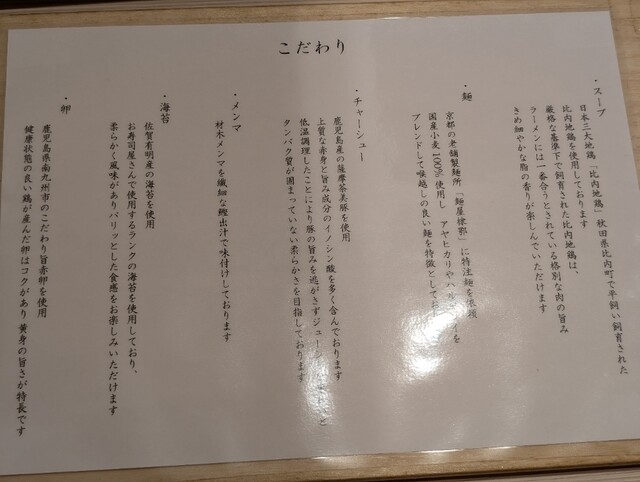 こだわり
・スープ
日本三大地鶏「比内地鶏」秋田県比内町で平飼い飼育された
比内地鶏を使用しております
厳格な基準下で飼育された比内地鶏は、
ラーメンには一番合うとされている格別な肉の旨み
きめ細やかな脂の香りが楽しんでいただけます
・麺
京都の老舗製麺所「麺屋棣鄂」に特注麺を依頼
国産小麦100%使用し アヤヒカリやハル イを
ブレンドして喉越しの良い麺を特徴として
・チャーシュー
鹿児島産の薩摩茶美豚を使用
上質な赤身と旨み成分のイノシン酸を多く含んでおります
低温調理したことにより豚の旨みを逃がさずジューシー と
タンパク質が固まっていない柔らかさを目指しております
・メンマ
材木メンマを繊細な鰹出汁で味付けしております
・海苔
佐賀有明産の海苔を使用
お寿司屋さんで使用するランクの海苔を使用しており、
柔らかく風味がありパリッとした食感をお楽しみいただけます
・卵
鹿児島県南九州市のこだわり旨赤卵を使用
健康状態の良い鶏が産んだ卵はコクがあり 黄身の旨さが特長です